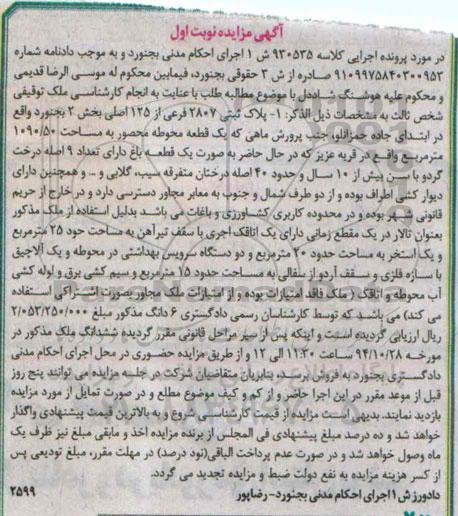 آگهی مزایده نوبت اول
در مورد پرونده اجرایی کلاسه ۹۳۰۵۳۵ ش ۱ اجرای احکام مدنی بجنورد و به موجب دادنامه شماره
۹۱۰۹۹۷۵۸۴۰۳۰۰۹۵۳ صادره از ش ۳ حقوقی بجنورد، فیمابین محکوم له موسی الرضا قدیمی
و محکوم علیه هوشنگ شاددل با موضوع مطالبه طلب با عنایت به انجام کارشناسی ملک توقیفی
شخص ثالث به مشخصات ذیل الذکر: ۱- پلاک ثبتی ۲۸۰۷ فرعی از ۱۲۵ اصلی بخش ۲ بجنورد واقع
در ابتدای جاده حمزانلو، جنب پرورش ماهی که یک قطعه محوطه محصور به مساحت ۱۰۹۰/۵۰
مترمربع واقع در قریه عزیز که در حال حاضر به صورت یک قطعه باغ دارای تعداد ۹ اصله درخت
گردو با سن بیش از ۱۰ سال و حدود ۴۰ اصله درختان متفرقه سیب، گلابی و ... و همچنین دارای
دیوار کشی اطراف بوده و از دو طرف شمال و جنوب به معابر مجاور دسترسی دارد و در خارج از حریم
قانونی شهر بوده و در محدوده کاربری کشاورزی و باغات می باشد بدلیل استفاده از ملک مذکور
بعنوان تالار در یک مقطع زمانی دارای یک اتاقک آجری با سقف تیرآهن به مساحت حود ۲۵ مترمربع
و یک استخر به مساحت حدود ۲۰ مترمربع و دو دستگاه سرویس بهداشتی در محوطه و یک آلاچیق
با سازه فلزی و سقف آردو از سفالی به مساحت حدود ۱۵ مترمربع و سیم کشی برق و لوله کشی
آب محوطه و اتاقک ( ملک فاقد امتیازات بوده و از امتیازات ملک مجاور بصورت اشتراکی استفاده
می کند) می باشد که توسط کارشناسان رسمی دادگستری ۶ دانگ مذکور مبلغ ۲/۰۵۳/۲۵۰/۰۰۰
ریال ارزیابی گردیده است و اینکه پس از سیر مراحل قانونی مقرر گردیده ششدانگ ملک مذکور در
مورخه ۹۴/۱۰/۲۸ ساعت ۱۱:۳۰ الی ۱۲ و از طریق مزایده حضوری در محل اجرای احکام مدنی
دادگستری بجنورد به فروش برسد، بنابراین متقاضیان شرکت در جلسه مزایده می توانند پنج روز
قبل از موعد مقرر در این اجرا حاضر و از کم و کیف موضوع مطلع و در صورت تمایل از مورد مزایده
بازدید نمایند. بدیهی است مزایده از قیمت کارشناسی شروع و به بالاترین قیمت پیشنهادی واگذار
خواهد شد و ده درصد مبلغ پیشنهادی فی المجلس از برنده مزایده اخذ و مابقی مبلغ نیز ظرف یک
ماه وصول خواهد شد و در صورت عدم پرداخت الباقی(نود درصد) در مهلت مقرر، مبلغ تودیعی پس
از کسر هزینه مزایده به نفع دولت ضبط و مزایده تجدید می گردد.
دادورز ش ۱ اجرای احکام مدنی بجنورد- رضاپور
۲۵۹۹